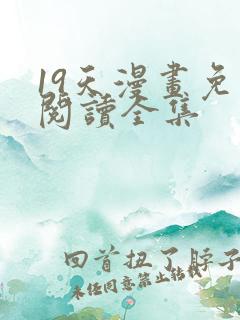 19天漫畫免
閱讀全集
回首扭了脖子
未经同意禁止转载